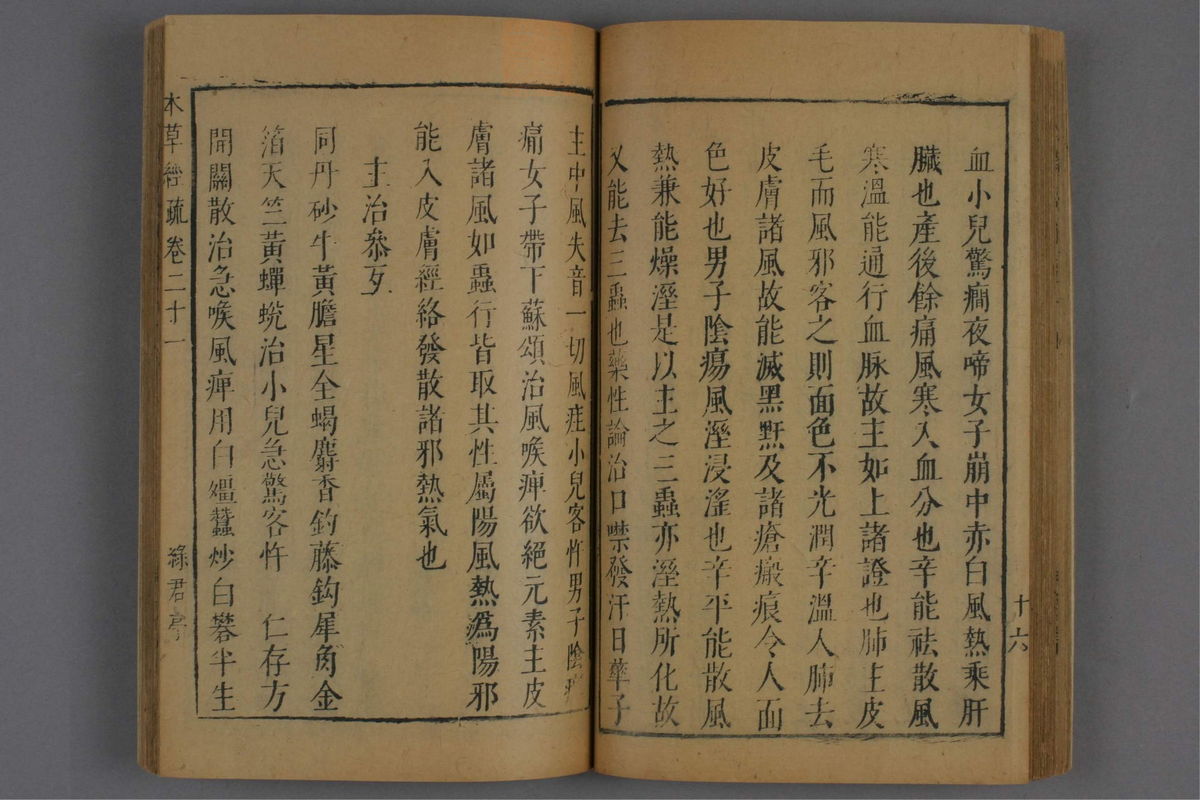 血小兒驚癎夜啼女子崩中赤白風熱乘肝
臟也產後餘痛風寒入血分也辛能祛散風
寒溫能通行血脉故主如上諸證也肺主皮
毛而風邪客之則面色不光潤辛溫入肺去
皮膚諸風故能滅黑䵟及諸瘡瘢痕令人面
色好也男子陰瘍風溼浸淫也辛平能散風
熱兼能燥溼是以主之三蟲亦溼熱所化故
又能去三蟲也藥性論治口噤發汗日華子
十六
主中風失音一切風疰小兒客忤男子陰痒
痛女子帶下蘇頌治風喉痺欲絕元素主皮
膚諸風如蟲行皆取其性屬陽風熱為陽邪
能入皮膚經絡發散諸邪熱氣也
主治叅互
同丹砂牛黃膽星全蝎麝香釣藤鈎犀角金
箔天竺黃蟬蛻治小兒急驚客忤 仁存方
開關散治急喉風痺用白殭蠶炒白礬半生
本草經疏卷二十一
綠君亭